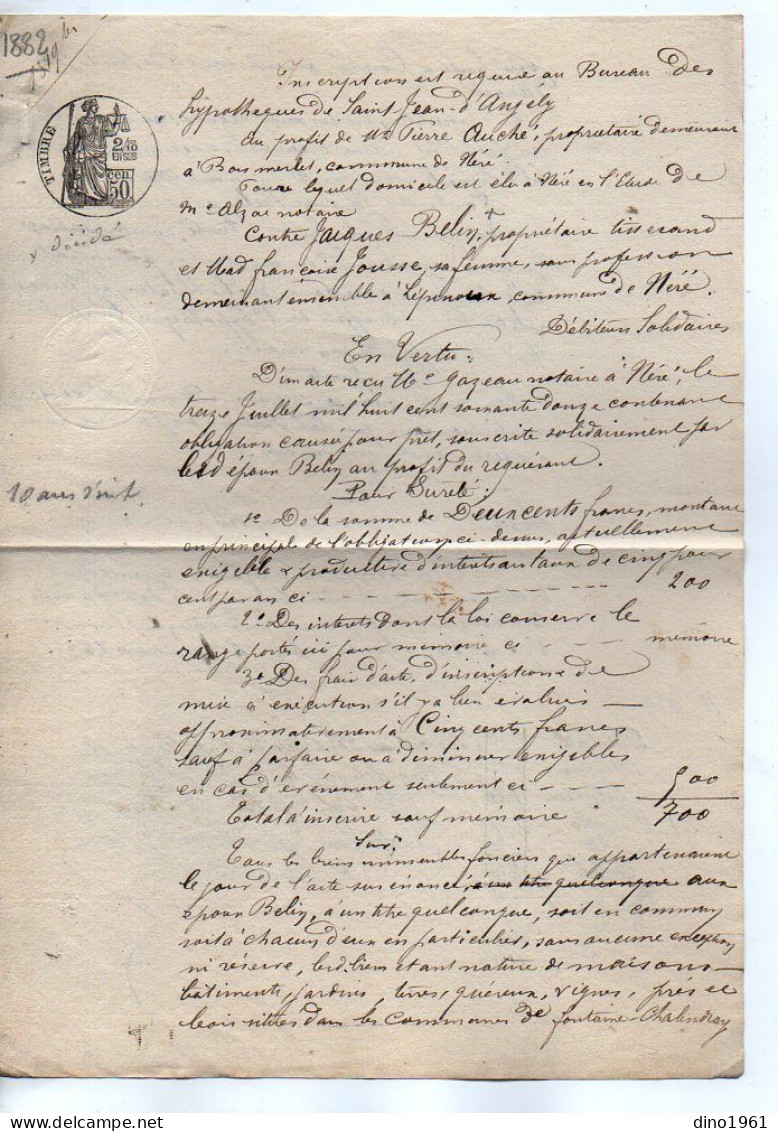 1882
TIMBRE
2/10
EN SUS
50 cen
x décédé
10 ans d'int.
Inscription est requise au Bureau des
hypothèques de Saint Jean-d'Angely
Au profit de Mr Pierre Auché, propriétaire demeurant
à Boismerlet, commune de Néré.
Pour lequel domicile est élu à Néré en l'Etude de
Me notaire
Contre Jacques Belin + propriétaire tisserand
et Mad françoise Jousse, sa femme, sans profession
demeurant ensemble à commune de Néré.
Débiteurs Solidaires
En Vertu:
D'un acte reçu Me Gazeau notaire à Néré, le
treize Juillet mil huit cent soixante douze contenant
obligation causé pour prêt, souscrite solidairement par
lesd époux Belin au profit du requérant.
Pour Sureté:
1o De la somme de Deux cents francs, montant
en principal de l'obligation ci-dessus, actuellement
exigible & productive d'intérêts au taux de cinq pour
cent par an ci - - - - 200
2o Des intérêts dont la loi conserve le
rang portés ici pour mémoire ci - - - mémoire
3o Des frais d'acte, d'inscription & de
mise à exécution s'il y a lieu évalués
approximativement à Cinq cents francs
sauf à parfaire ou à diminuer exigibles
en cas d'événement seulement ci - - - 500
Total à inscrire sauf mémoire 700
Sur:
Tous les biens immeubles fonciers qui appartenaient
le jour de l'acte sus énoncé, à un titre quelconque aux
époux Belin, à un titre quelconque, soit en commun
soit à chacun d'eux en particulier, sans aucune exception
ni réserve, lesd. biens étant nature de maisons
bâtiments, jardins, terres, quéreux, vignes, prés et
bois situés dans les communes de fontaine-Chalendray
dino1961